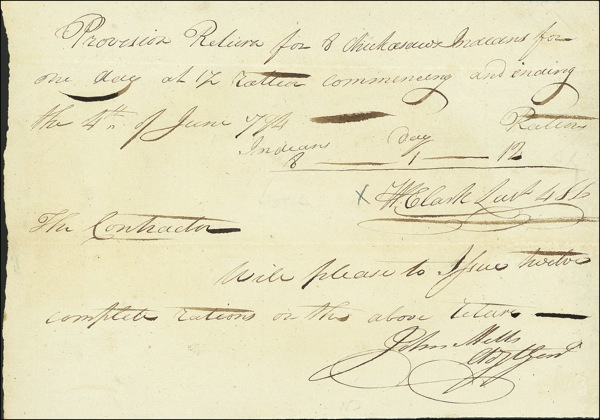 Provision Return for 8 Chickasaw Indians for
one day at 12 ration commencing and ending
the 4th. of June 794
Indians Day Rations
8 1 12
X W Clark Lieut 4 S L
The Contractor
Will please to Issue twelve
complete rations on the above return
John Mills
Adjt Genl